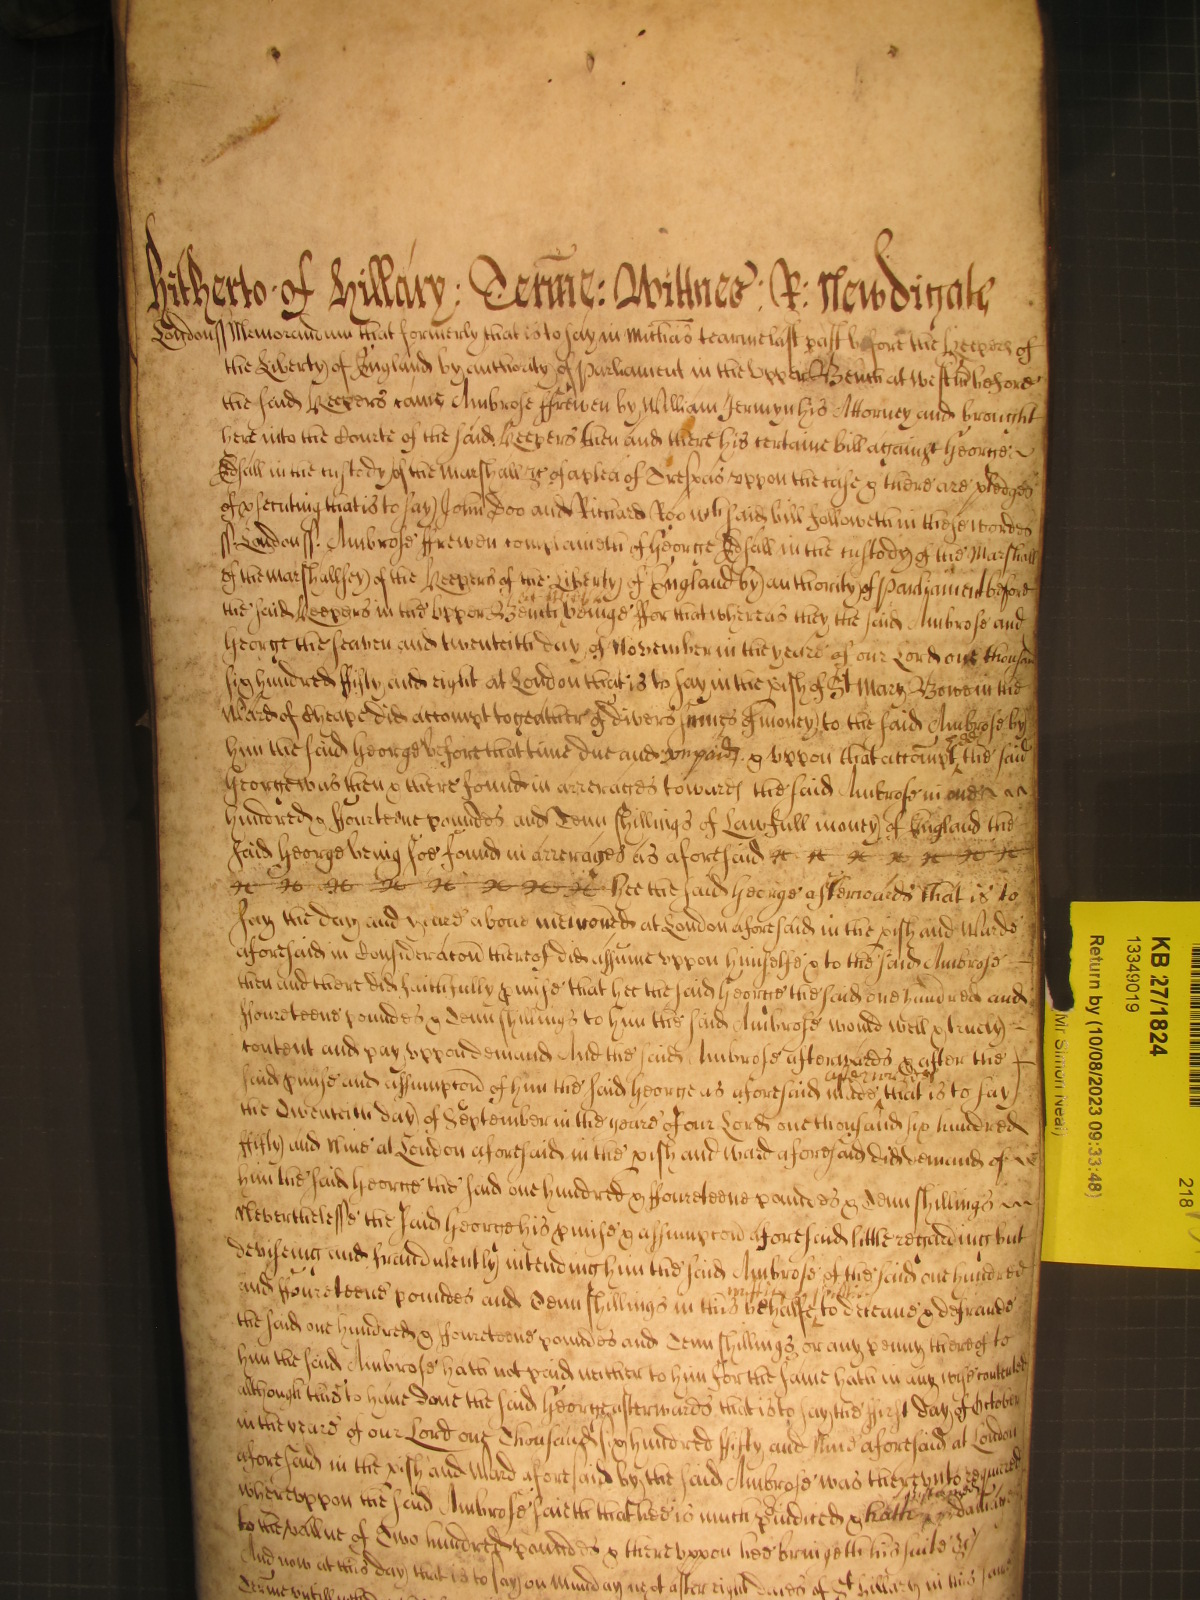 hitherto of Hillary: Terme: Wittnes: R: Newdigate
London ss Memorandum that formerly that is to say in Michas tearme last past before the Keepers of
the Liberty of England by authority of Parliament in the Upper Bench at Westm before
the said Keepers came Ambrose ffrewen by William Jermyn his Attorney and brought
here into the Courte of the said Keepers then and there his certaine bill against George
Edsall in the custody of the Marshall &c of a plea of Trespas uppon the case & there are pledges
of psecuting that is to say John Doo and Richard Roo wch said bill followeth in these wordes
ss London ss Ambrose ffrewen complaineth of George Edsall in the custody of the Marshall
of the Marshallsey of the Keepers of the Liberty of England by authority of Parliament before
the said Keepers in the upper Bench beinge ffor that whereas they the said Ambrose and
George the seaven and twenteith day of November in the yeare of our Lord one thousand
six hundred ffifty and eight at London that is to say in the pish of St Mary Bowe in the
Ward of Cheape did accompt togeather of divers summes of money to the said Ambrose by
him the said George before that time due and unpaid & uppon that accompt the said
George was then & there found in arrerages towards the said Ambrose in one
hundred & ffourteene poundes and Tenn shillings of Lawfull money of England the
said George being soe found in arrerages as aforesaid
Hee the said George afterwards that is to
say the day and yeare above mencioned at London aforesaid in the pish and Warde
aforesaid in Consideracon thereof did assume uppon himselfe & to the said Ambrose
then and there did faithfully pmise that hee the said George the said one hundred and
ffoureteene poundes & Tenn shillings to him the said Ambrose would well & truely
content and pay uppon demand And the said Ambrose afterwards & after the
said pmise and assumpcon of him the said George as aforesaid made
afterwards
that is to say
the Twenteith day of September in the yeare of our Lord one thousand six hundred
ffifty and Nine at London aforesaid in the pish and ward aforesaid did demand of
him the said George the said one hundred & ffoureteene poundes & Tenn shillings
Neverthelesse the said George his pmise & assumpcon aforesaid little regarding but
deviseing and fraudulently intending him the said Ambrose of the said one hundred
and ffoureteene poundes and Tenn shillings in this behalfe to deceave & defraude
the said one hundred & ffoureteene poundes and Tenn shillings or any penny thereof to
him the said Ambrose hath not paid neither to him for the same hath in any wise contented
although this to have done the said George afterwards that is to say the ffirst day of October
in the yeare of our Lord one Thousand six hundred ffifty and Nine aforesaid at London
aforesaid in the pish and Ward aforesaid by the said Ambrose was thereunto required
whereuppon the said Ambrose saieth that hee is much piudiced & hath
to the vallue of Two hundred poundes & thereuppon hee bringeth his suite &c
And now at this day that is to say on Munday next after eight daies of St Hillary in this same
Terme untill
KB 27/1824
13349019
Return by (10/08/2023 09:33:48)
Mr Simon Neal
218